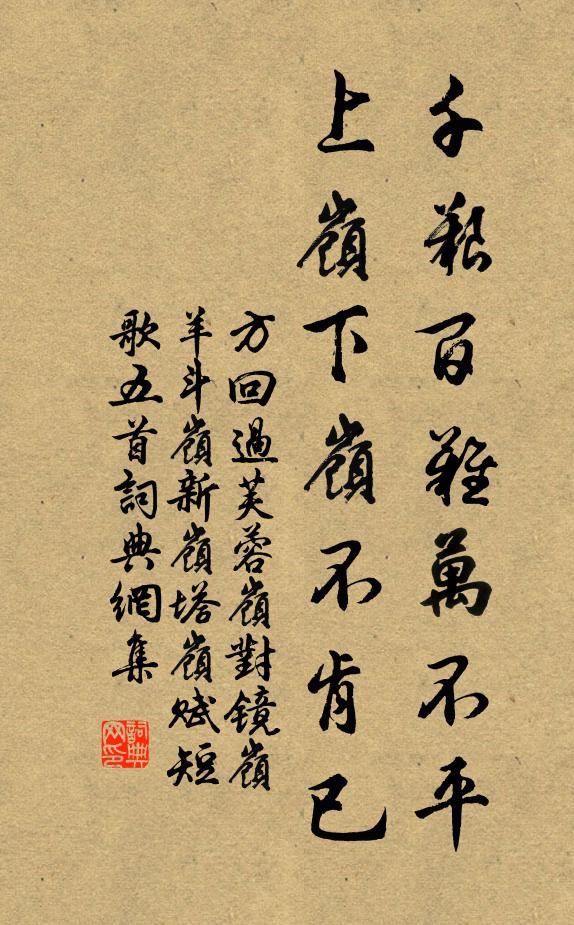 千艱百難萬不平
上嶺下嶺不肯已
方回過芙蓉嶺對鏡嶺
羊斗嶺新嶺塔嶺賦短
歌五首詞典網集
詞典
网印